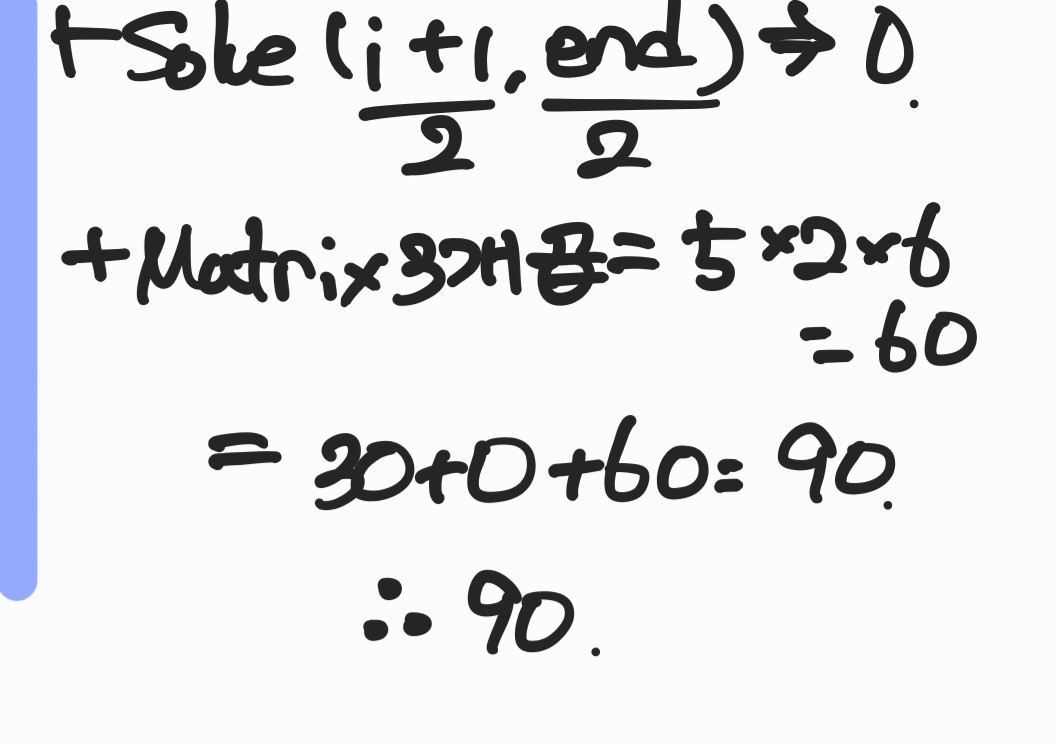 +Solve (i+1, end) → 0.
2 2
+Matrix 3개 곱 = 5×2×6
= 60
= 30+0+60= 90.
∴ 90.